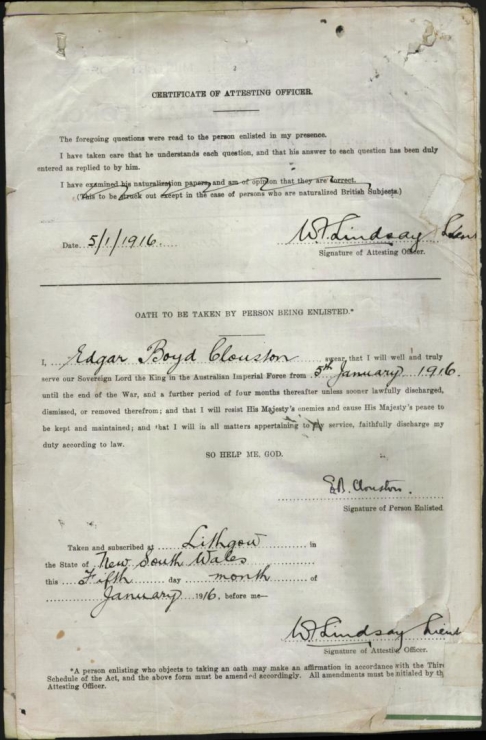 CERTIFICATE OF ATTESTING OFFICER.
The foregoing questions were read to the person enlisted in my presence.
I have taken care that he understands each question, and that his answer to each question has been duly
entered as replied to by him.
I have examined his naturalization papers and am of opinion that they are correct.
(This to be struck out except in the case of persons who are naturalized British Subjects.)
Date 5/1/1916.
W. Lindsay Lieut
Signature of Attesting Officer.
OATH TO BE TAKEN BY PERSON BEING ENLISTED.*
I, Edgar Boyd Clouston swear that I will well and truly
serve our Sovereign Lord the King in the Australian Imperial Force from 5th January 1916
until the end of the War, and a further period of four months thereafter unless sooner lawfully discharged,
dismissed, or removed therefrom; and that I will resist His Majesty's enemies and cause His Majesty's peace to
be kept and maintained; and that I will in all matters appertaining to my service, faithfully discharge my
duty according to law.
SO HELP ME, GOD.
E.B. Clouston.
Signature of Person Enlisted.
Taken and subscribed at Lithgow in
the State of New South Wales
this Fifth day month of
January 1916. before me—
W. Lindsay Lieut
Signature of Attesting Officer.
*A person enlisting who objects to taking an oath may make an affirmation in accordance with the Third
Schedule of the Act, and the above form must be amended accordingly. All amendments must be initialed by the
Attesting Officer.